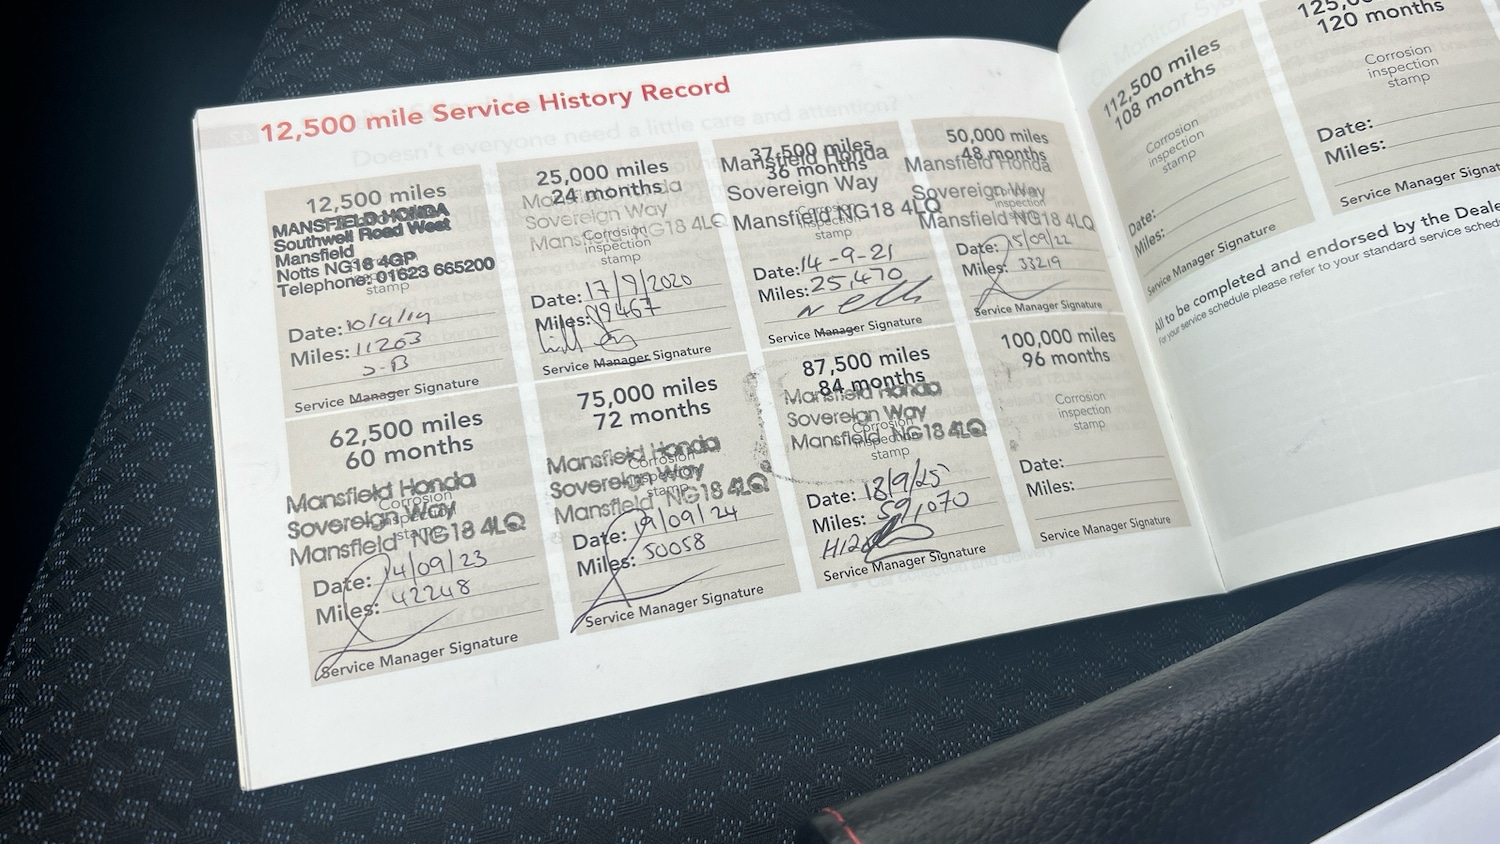 12,500 mile Service History Record
12,500 miles
MANSFIELD HONDA
Southwell Road West
Mansfield
Notts NG18 4GP
Telephone: 01623 665200
stamp
Date: 10/9/19
Miles: 11263
J-B
Service Manager Signature
25,000 miles
24 months
Mansfield Honda
Sovereign Way
Mansfield NG18 4LQ
Corrosion
inspection
stamp
Date: 17/9/2020
Miles: 19467
Service Manager Signature
37,500 miles
36 months
Mansfield Honda
Sovereign Way
Mansfield NG18 4LQ
Corrosion
inspection
stamp
Date: 14-9-21
Miles: 25,470
Service Manager Signature
50,000 miles
48 months
Mansfield Honda
Sovereign Way
Mansfield NG18 4LQ
inspection
stamp
Date: 15/09/22
Miles: 33219
Service Manager Signature
62,500 miles
60 months
Mansfield Honda
Sovereign Way
Mansfield NG18 4LQ
Corrosion
inspection
stamp
Date: 14/09/23
Miles: 42248
Service Manager Signature
75,000 miles
72 months
Mansfield Honda
Sovereign Way
Mansfield NG18 4LQ
Corrosion
inspection
stamp
Date: 19/09/24
Miles: 50058
Service Manager Signature
87,500 miles
84 months
Mansfield Honda
Sovereign Way
Mansfield NG18 4LQ
Corrosion
inspection
stamp
Date: 18/9/25
Miles: 59,070
Service Manager Signature
100,000 miles
96 months
Corrosion
inspection
stamp
Date:
Miles:
Service Manager Signature
112,500 miles
108 months
Corrosion
inspection
stamp
Date:
Miles:
Service Manager Signature
120 months
Corrosion
inspection
stamp
Date:
Miles:
Service Manager
All to be completed and endorsed by the
For your service schedule please refer to your standard service